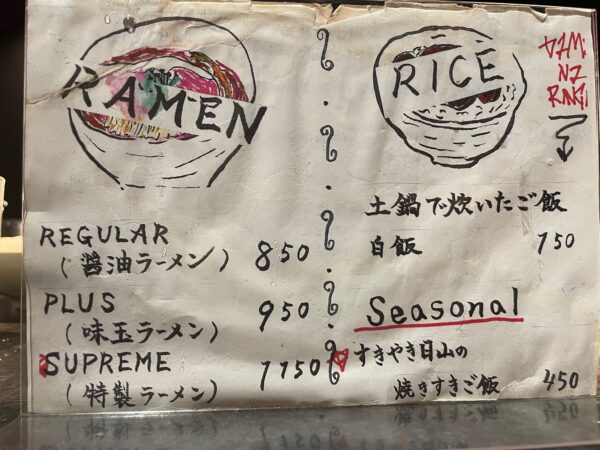 RAMEN
REGULAR
(醤油ラーメン) 850
PLUS
(味玉ラーメン) 950
SUPREME
(特製ラーメン) 1150
RICE
土鍋で炊いたご飯
白飯 150
Seasonal
すきやき日山の
焼きすきご飯 450